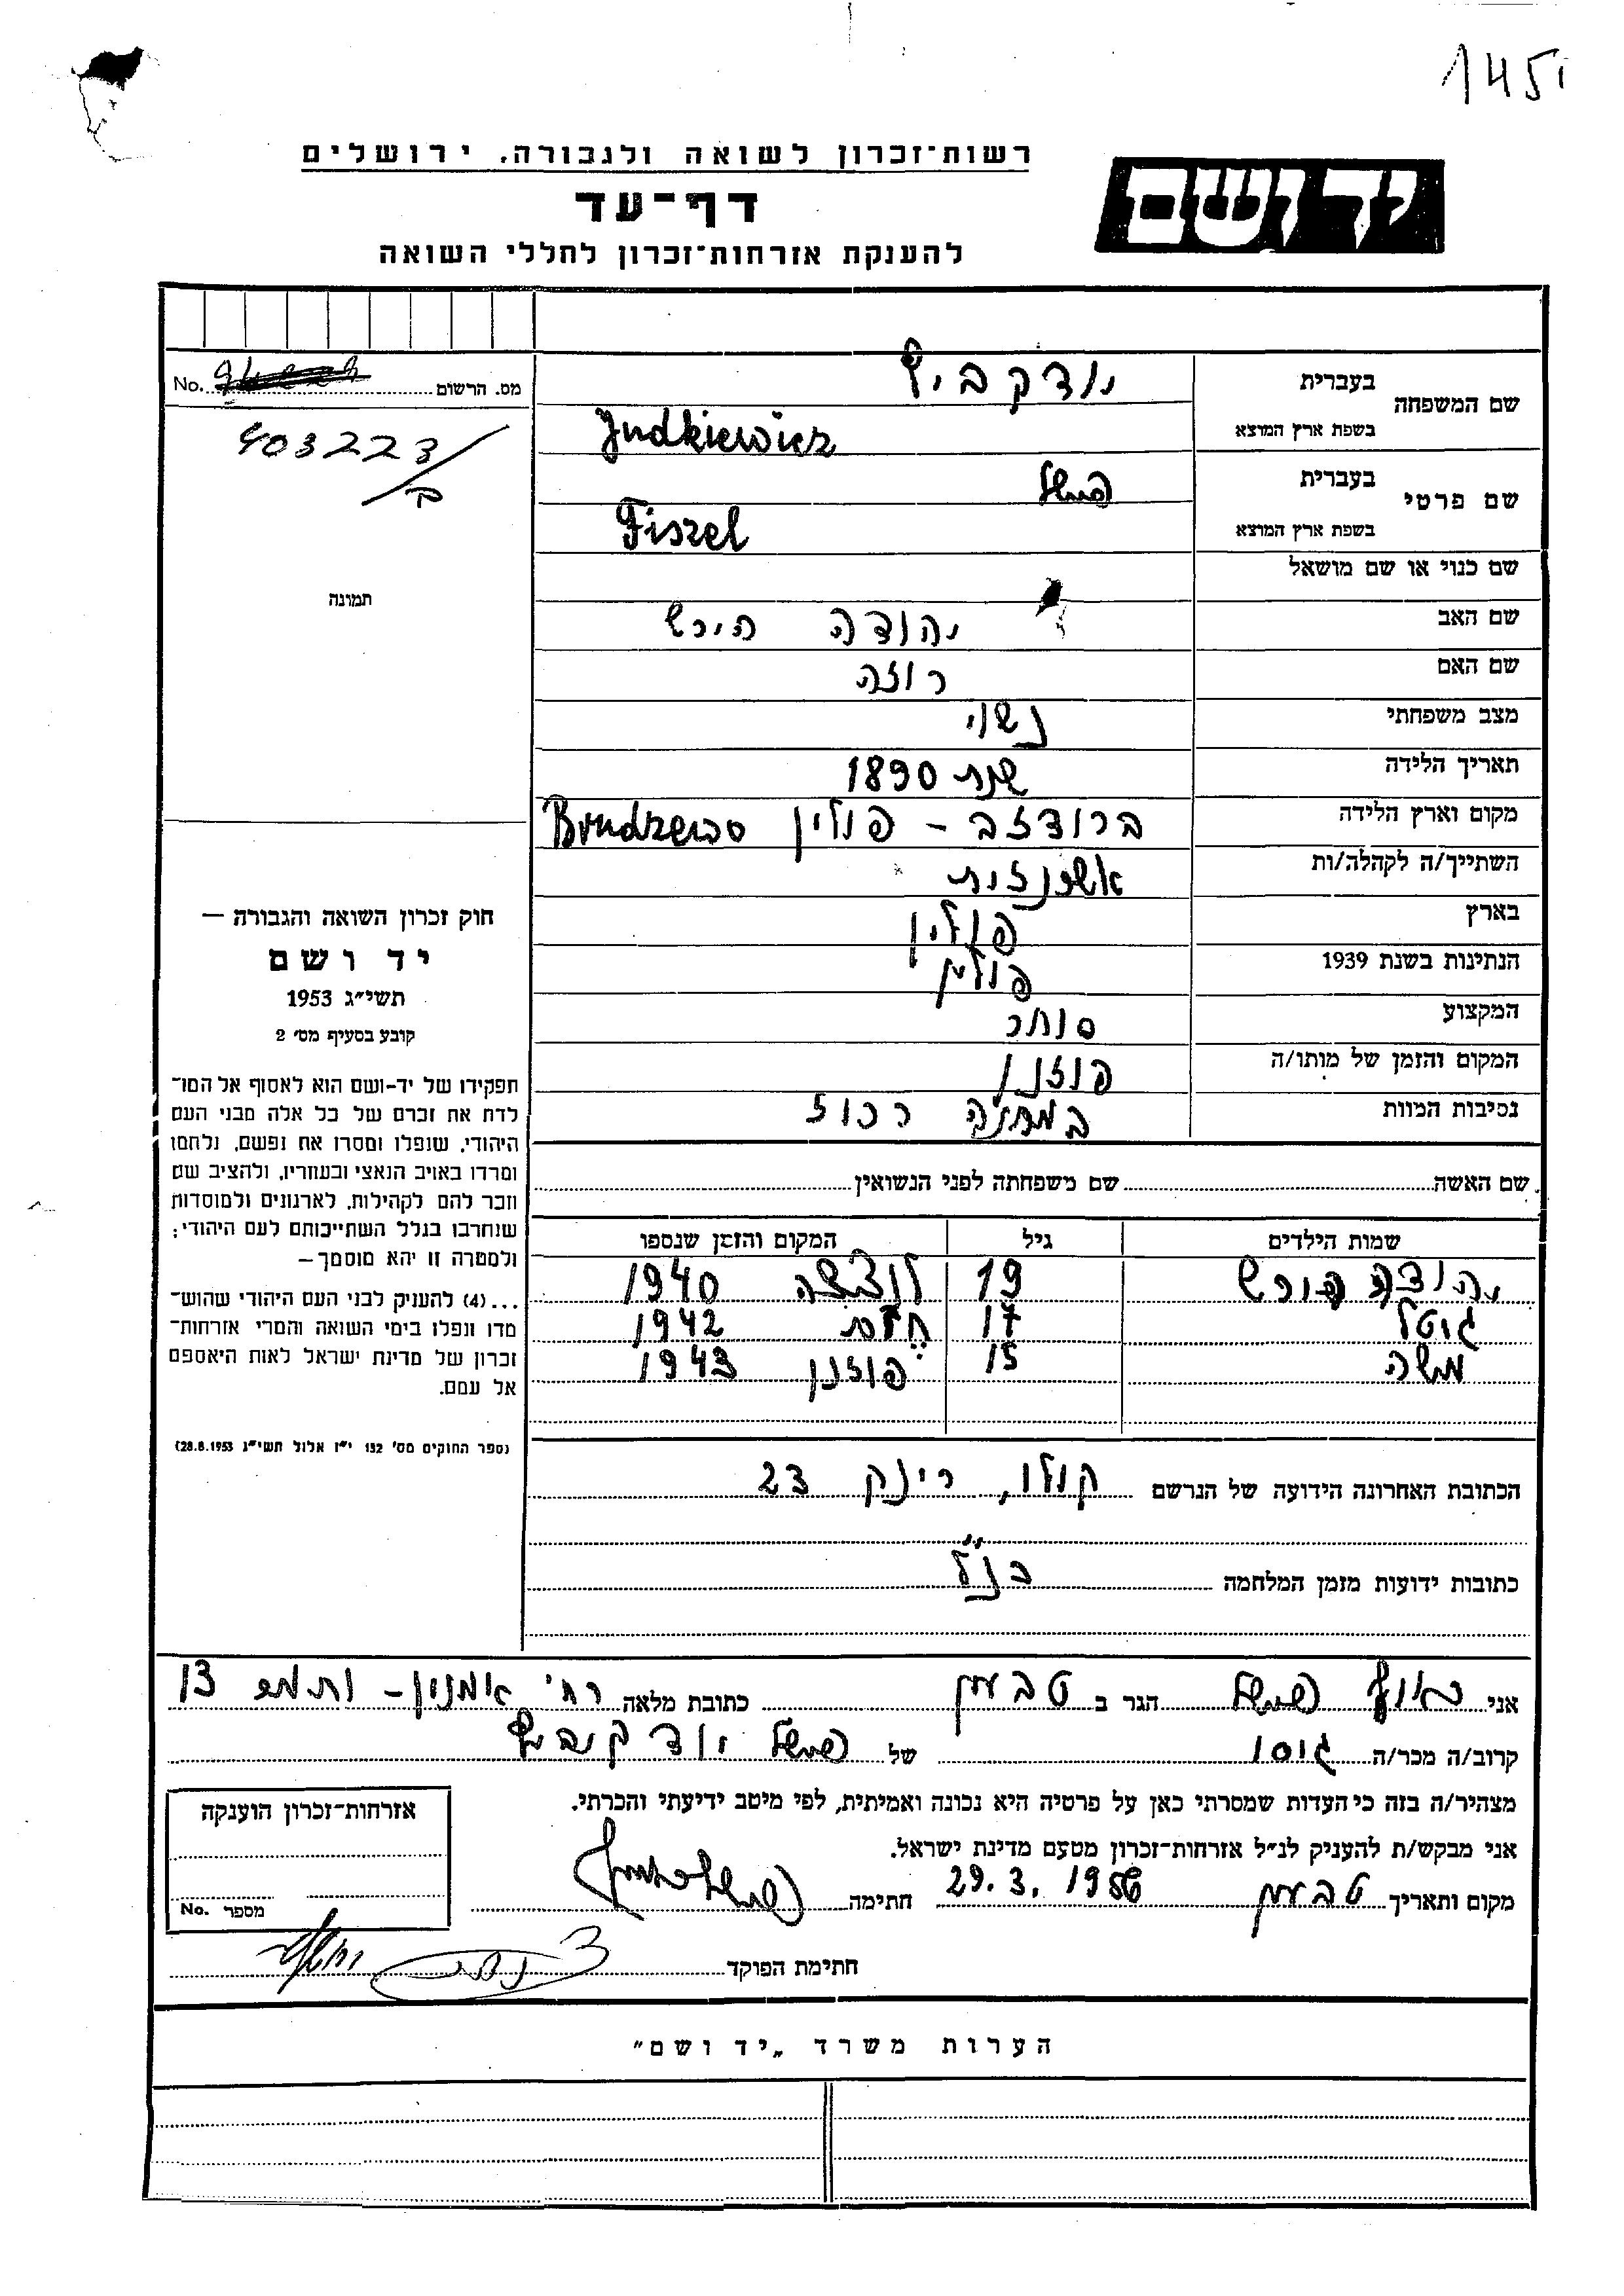 145
רשות־זכרון לשואה ולגבורה, ירושלים
יד ושם
דף־עד
להענקת אזרחות־זכרון לחללי השואה
שם המשפחה בעברית יודקביץ
בשפת ארץ המוצא Judkiewicz
מס. הרשום No.
403223/ק
שם פרטי בעברית פישל
בשפת ארץ המוצא Fiszel
שם כנוי או שם מושאל
תמונה
שם האב יהודה הירש
שם האם רוזה
מצב משפחתי נשוי
תאריך הלידה שנת 1890
מקום וארץ הלידה ברודזב - פולין Brudzewo
השתייך/ה לקהלה/ות אשכנזית
בארץ פולין
הנתינות בשנת 1939 פולין
המקצוע סוחר
המקום והזמן של מותו/ה פוזנן
נסיבות המוות במחנה רכוז
חוק זכרון השואה והגבורה —
יד ושם
תשי״ג 1953
קובע בסעיף מס׳ 2
תפקידו של יד־ושם הוא לאסוף אל המו־
לדת את זכרם של כל אלה מבני העם
היהודי, שנפלו ומסרו את נפשם, נלחמו
ומרדו באויב הנאצי ובעוזריו, ולהציב שם
וזכר להם לקהילות, לארגונים ולמוסדות
שנחרבו בגלל השתייכותם לעם היהודי;
ולמטרה זו יהא מוסמך —
...(4) להעניק לבני העם היהודי שהוש־
מדו ונפלו בימי השואה והמרי אזרחות־
זכרון של מדינת ישראל לאות היאספם
אל עמם.
(ספר החוקים מס׳ 132 י״ז אלול תשי״ג 28.8.1953)
שם האשה שם משפחתה לפני הנשואין
שמות הילדים גיל המקום והזמן שנספו
יהודה הירש 19 1940
גוטל 17 1942
משה 15 פוזנן 1943
הכתובת האחרונה הידועה של הנרשם קולו, רינק 23
כתובות ידועות מזמן המלחמה כנ״ל
אני פישל הגר ב טבעון כתובת מלאה רח׳ אמנון - ותמר 13
קרוב/ה מכר/ה גיסו של פישל יודקיביץ
מצהיר/ה בזה כי העדות שמסרתי כאן על פרטיה היא נכונה ואמיתית, לפי מיטב ידיעתי והכרתי.
אני מבקש/ת להעניק לנ״ל אזרחות־זכרון מטעם מדינת ישראל.
מקום ותאריך טבעון 29.3.1956 חתימה
אזרחות־זכרון הוענקה
מספר No.
חתימת הפוקד
הערות משרד „יד ושם״